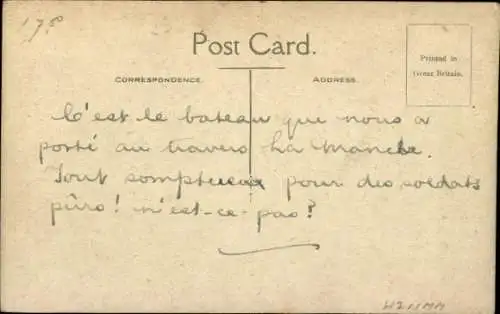 178
Post Card.
Printed in
Great Britain.
CORRESPONDENCE.
ADDRESS.
C'est le bateau que nous a
porté au travers La Manche.
Tout somptueux pour des soldats
pûrs! n'est-ce-pas?